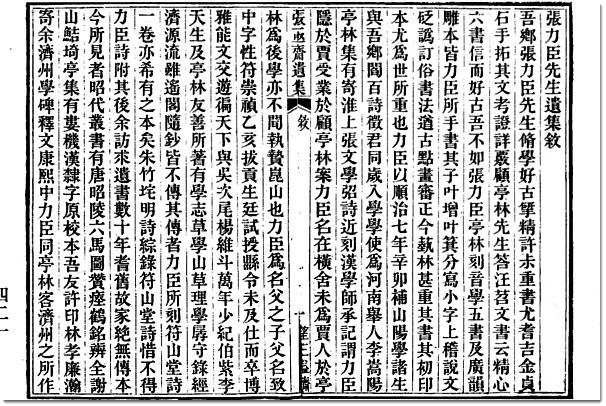 張力臣先生遺集敘
吾鄉張力臣先生脩學好古
擘精許未重書尤耆吉金貞
石手拓其文考證詳覈顧亭林先生答汪苕文書云精心
六書信而好古吾不如張力臣亭林刻音學五書及廣韻
雕本皆力臣所手書其子叶增叶箕分寫小字上稽說文
砭譌訂俗書法遒古點畫審正今埶林甚重其書其初印
本尤爲世所重也力臣以順治七年辛卯補山陽學諸生
與吾鄉閻百詩徵君同歲入學學使爲河南舉人李嵩陽
亭林集有寄淮上張文學弨詩近刻漢學師承記謂力臣
隱於賈受業於顧亭林案力臣名在橫舍未爲賈人於亭
張亟齋遺集
敘
一
林爲後學亦不聞執贄崑山也力臣爲名父之子父名致
中字性符崇禎乙亥拔貢生廷試授縣令未及仕而卒博
雅能文交遊徧天下與吳次尾楊維斗萬年少紀伯紫李
天生及亭林友善所著有學志草學山草理學孱守錄經
濟源流雖遙閣隨鈔皆不傳其傳者力臣所刻符山堂詩
一卷亦希有之本矣朱竹垞明詩綜錄符山堂詩惜不得
力臣詩附其後余訪求遺書數十年耆舊故家絶無傳本
今所見者昭代叢書有唐昭陵六馬圖贊瘞鶴銘辨全謝
山鮚埼亭集有婁機漢隸字原校本吾友許印林孝廉瀚
寄余濟州學碑釋文康熙中力臣同亭林客濟州之所作
四二一